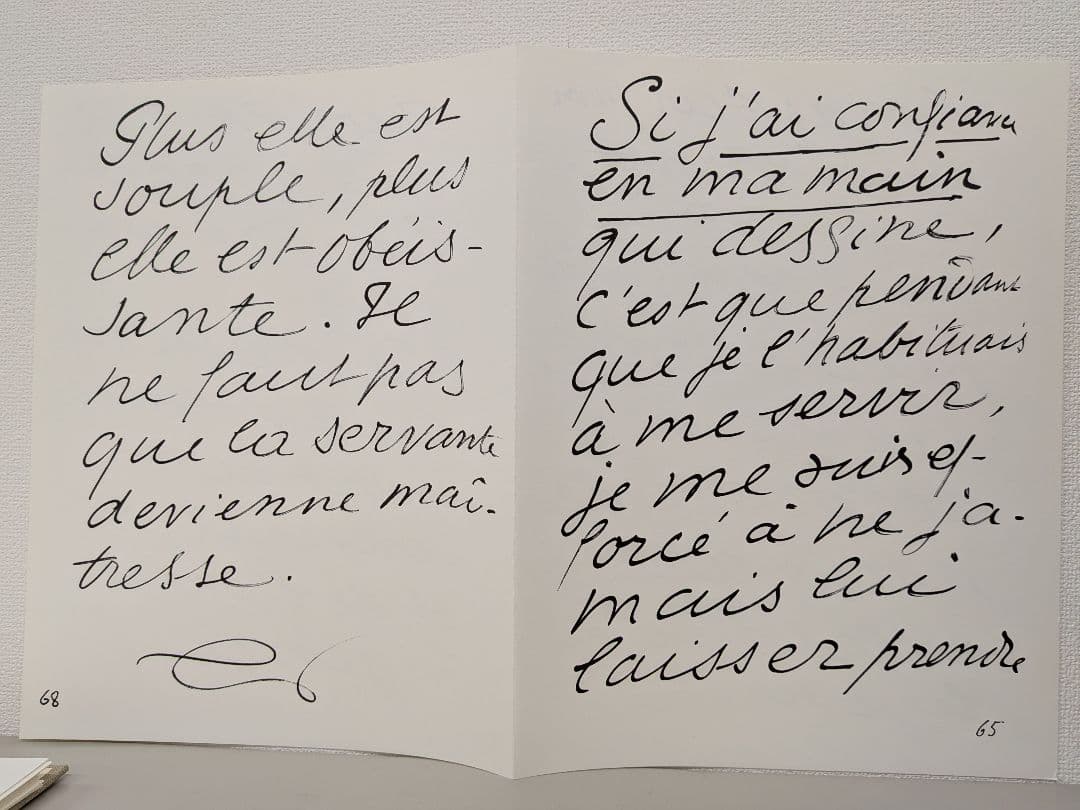 Plus elle est
souple, plus
elle est obéis-
sante. Il
ne faut pas
que la servante
devienne maî-
tresse.
68
Si j'ai confiance
en ma main
qui dessine,
c'est que pendant
que je l'habituais
à me servir,
je me suis ef-
forcé à ne ja-
mais lui
laisser prendre
65